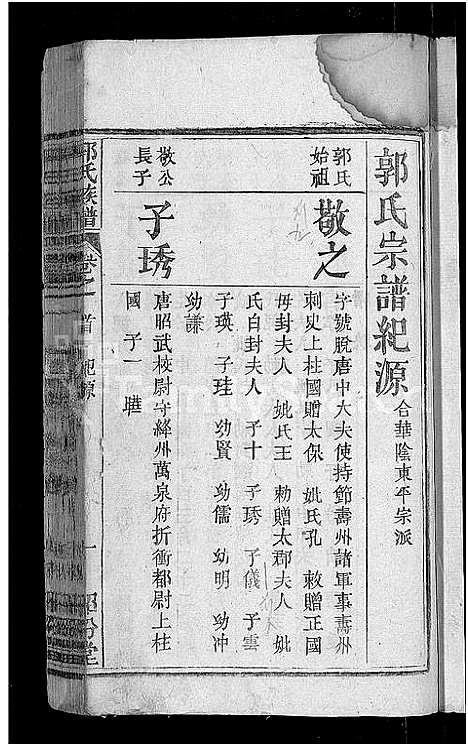 郭氏宗譜紀源 合華陰東平宗派
郭氏
始祖
敬之
字號脫唐中大夫使持節壽州諸軍事壽州
刺史上柱國贈太保 妣氏孔 敕贈正國
毋封夫人 妣氏王 勅贈太郡夫人 妣
氏白封夫人 子十 子琇 子儀 子雲
子瑛 子珪 幼賢 幼儒 幼明 幼冲
幼謙
敬公
長子
子琇
唐昭武校尉守絳州萬泉府折衝都尉上柱
國 子一 曄
郭氏族譜 卷之一 首 紀源 一 汾堂